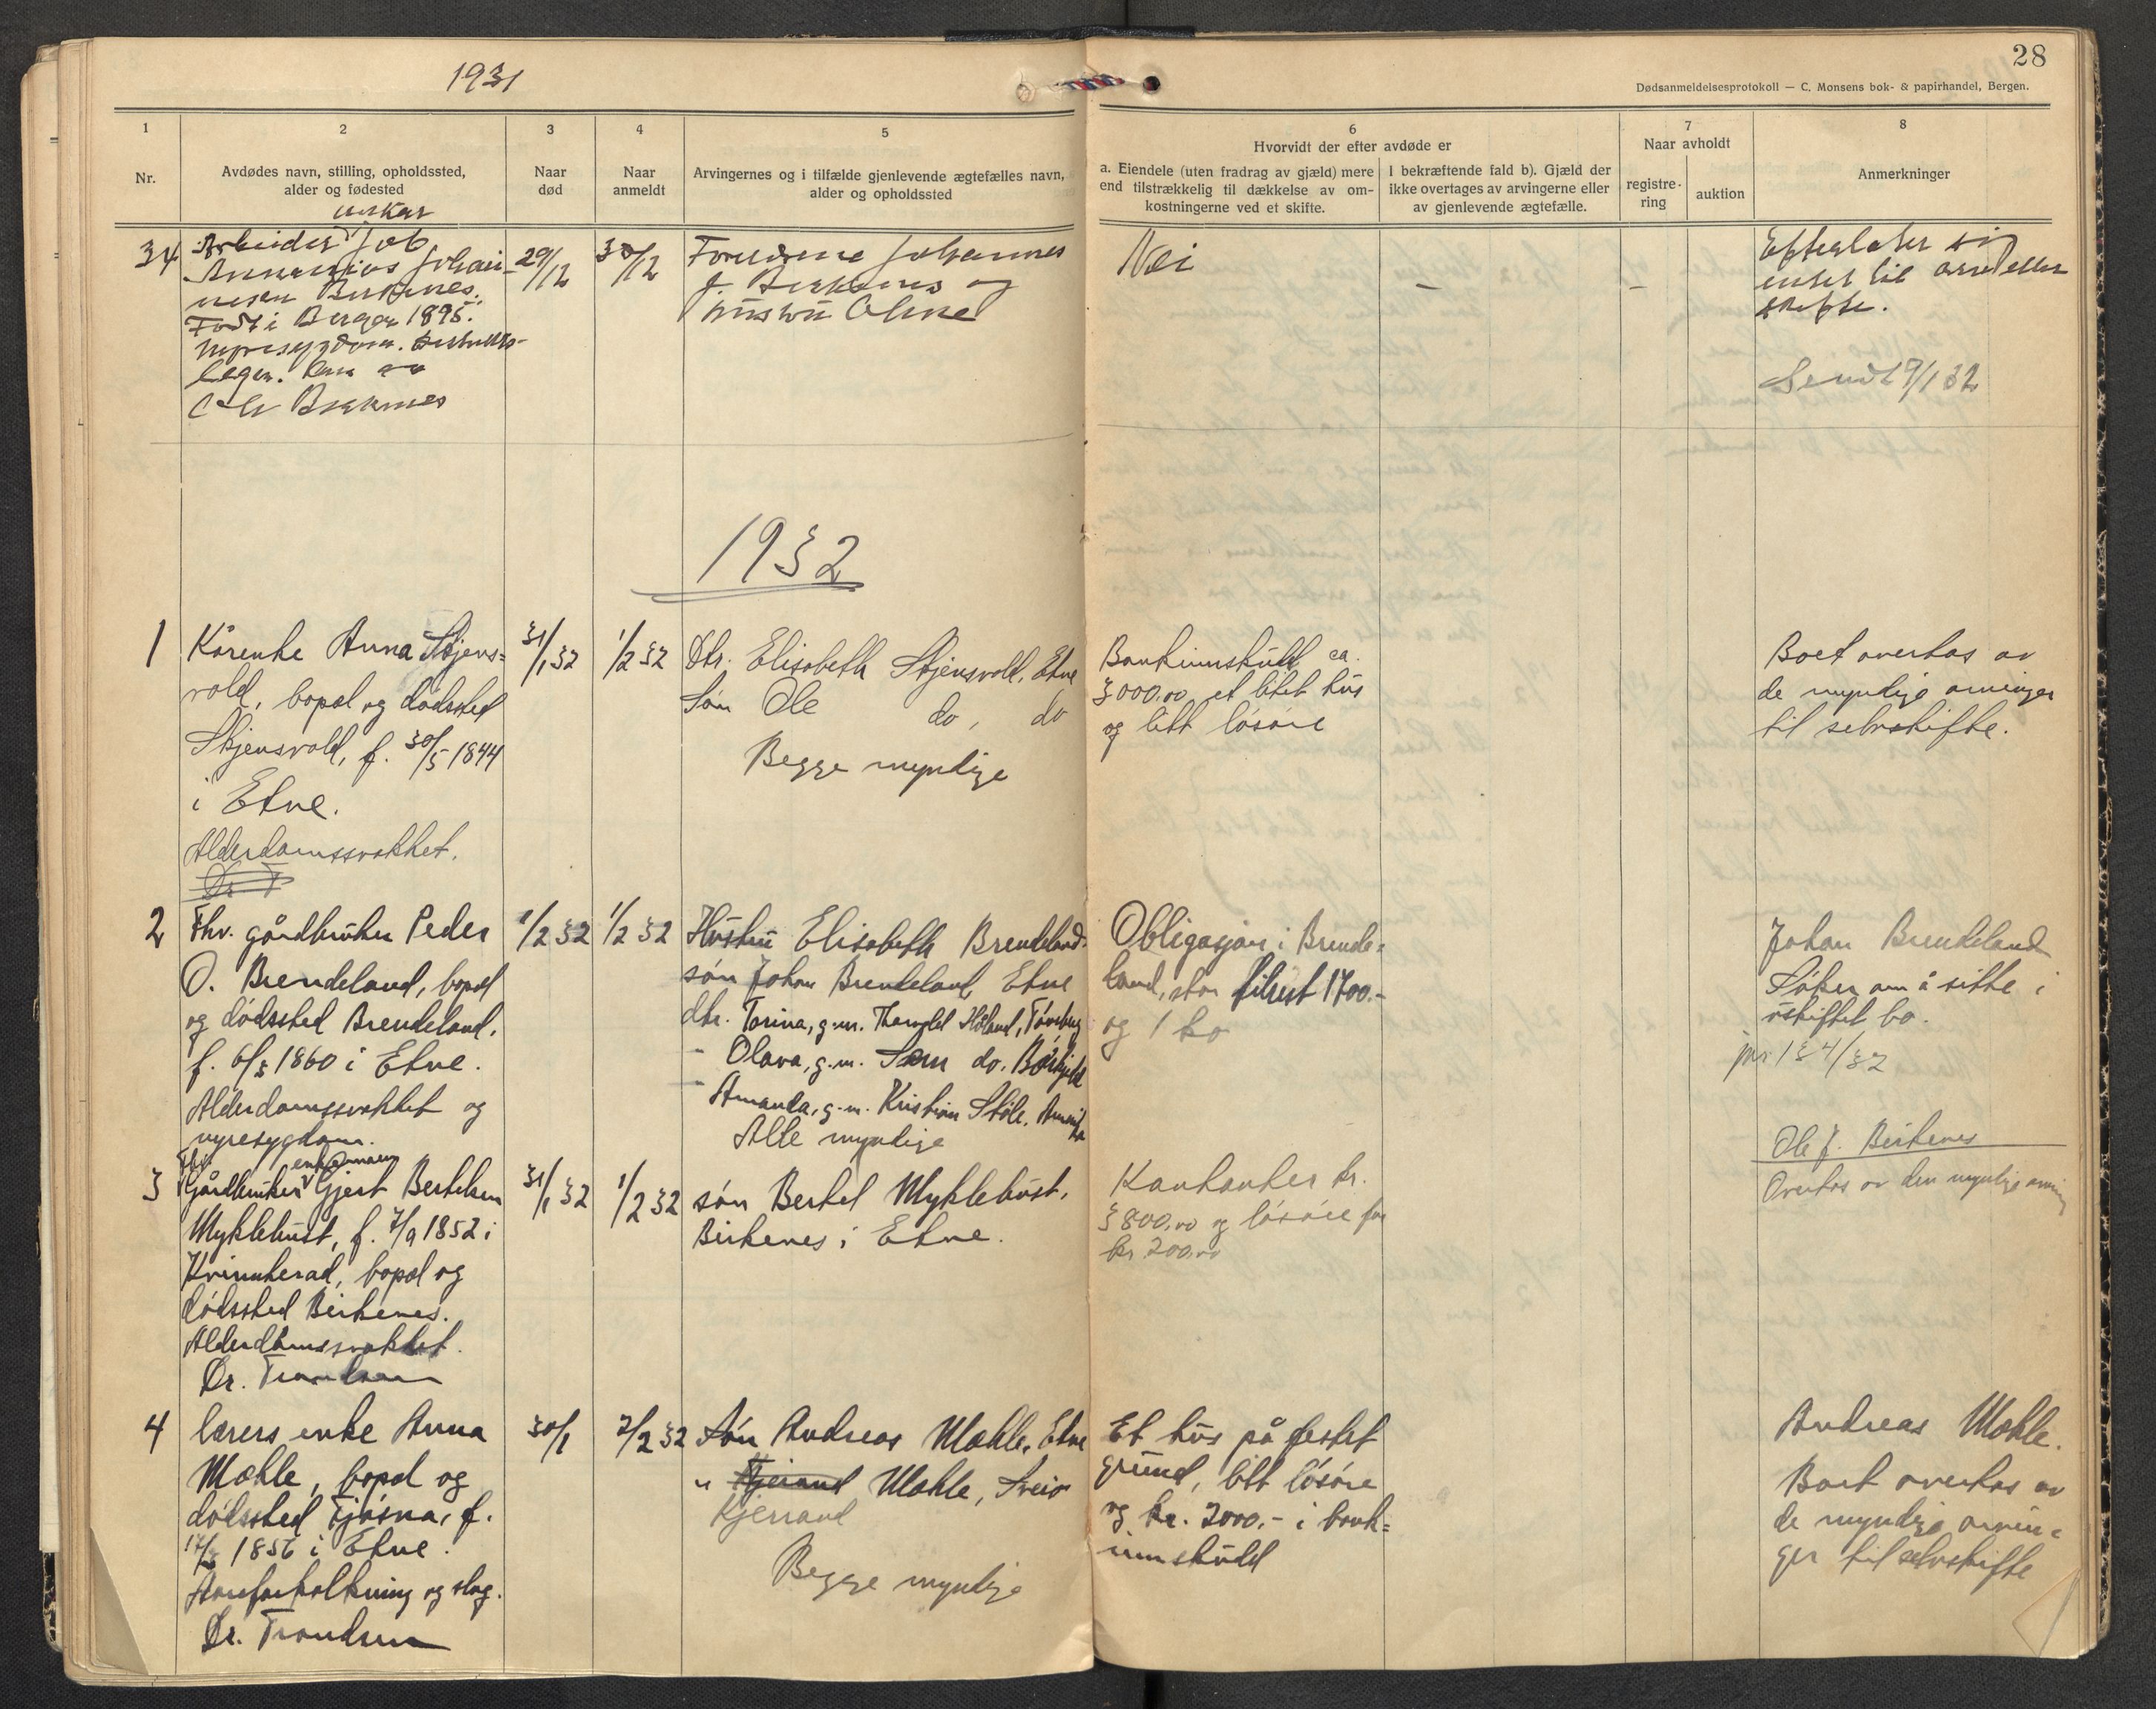 1931
28
Dødsanmeldelsesprotokoll — C. Monsens bok- & papirhandel, Bergen.
1
2
3
4
5
6
7
8
Nr.
Avdødes navn, stilling, opholdssted,
alder og fødested
Naar
død
Naar
anmeldt
Arvingernes og i tilfælde gjenlevende ægtefælles navn,
alder og opholdssted
Hvorvidt der efter avdøde er
a. Eiendele (uten fradrag av gjæld) mere
end tilstrækkelig til dækkelse av om-
kostningerne ved et skifte.
I bekræftende fald b). Gjæld der
ikke overtages av arvingerne eller
av gjenlevende ægtefælle.
Naar avholdt
registre-
ring
auktion
Anmerkninger
34
ungkar
Arbeider Job
Johan-
nesen Birkenes.
Født i Bergen 1895.
legen.
Birkenes
29/12
30/12
Foreldrene Johannes
J. Birkenes og
hustru Oline
Nei
—
—
Efterlater sig
intet til arv eller
skifte.
Sendt 9/1 32
1932
1
Kårenke Anna Stjens=
vold, bopel og dødssted
Stjensvold, f. 30/5 1844
i Etne.
Alderdomssvakhet.
Dr T
31/1 32
1/2 32
Dtr. Elisabeth Stjensvold, Etne
Søn Ole do, do
Begge myndige
Bankinnskudd ca.
3000,00, et litet hus
og litt løsøre
Boet overtas av
de myndige arvinger
til selvskifte.
2
Fhv. gårdbruker Peder
O. Brendeland, bopel
og dødssted Brendeland,
f. 6/3 1860 i Etne.
Alderdomssvakhet og
nyresygdom.
1/2 32
1/2 32
Hustru Elisabeth Brendeland.
søn Johan Brendeland, Etne
dtr. Torina, g.m. Thorvald Håland,
- Olava, g.m. do.
- Amanda, g.m. Kristian Støle, Amerika
Alle myndige
Obligasjon i Brende=
land, stor tilrest 1700.-
og 1 ko
Johan Brendeland
Søker om å sitte i
uskiftet bo.
4/32
3
Fhv enkemann
Gårdbruker Gjert Bertelsen
Myklebust, f. 7/9 1852 i
Kvinnherad, bopel og
dødssted Birkenes.
Alderdomssvakhet.
Dr. Trondsen
31/1 32
1/2 32
søn Bertel Myklebust,
Birkenes i Etne.
Kontanter kr.
3800,00 og løsøre for
kr 200,00
Ole J. Birkenes
Overtas av den myndige arving
4
Lærers enke Anna
Mæhle, bopel og
dødssted Tjøsna, f.
1856 i Etne.
Åreforkalkning og slag.
Dr. Trondsen
30/1
2/2 32
Søn Andreas Mæhle, Etne
" Mæhle, Sveio
Kjerrand
Begge myndige
Et hus på festet
grund, litt løsøre
og kr. 2000.- i bank=
innskudd
Andreas Mæhle.
Boet overtas av
de myndige arvin=
ger til selvskifte